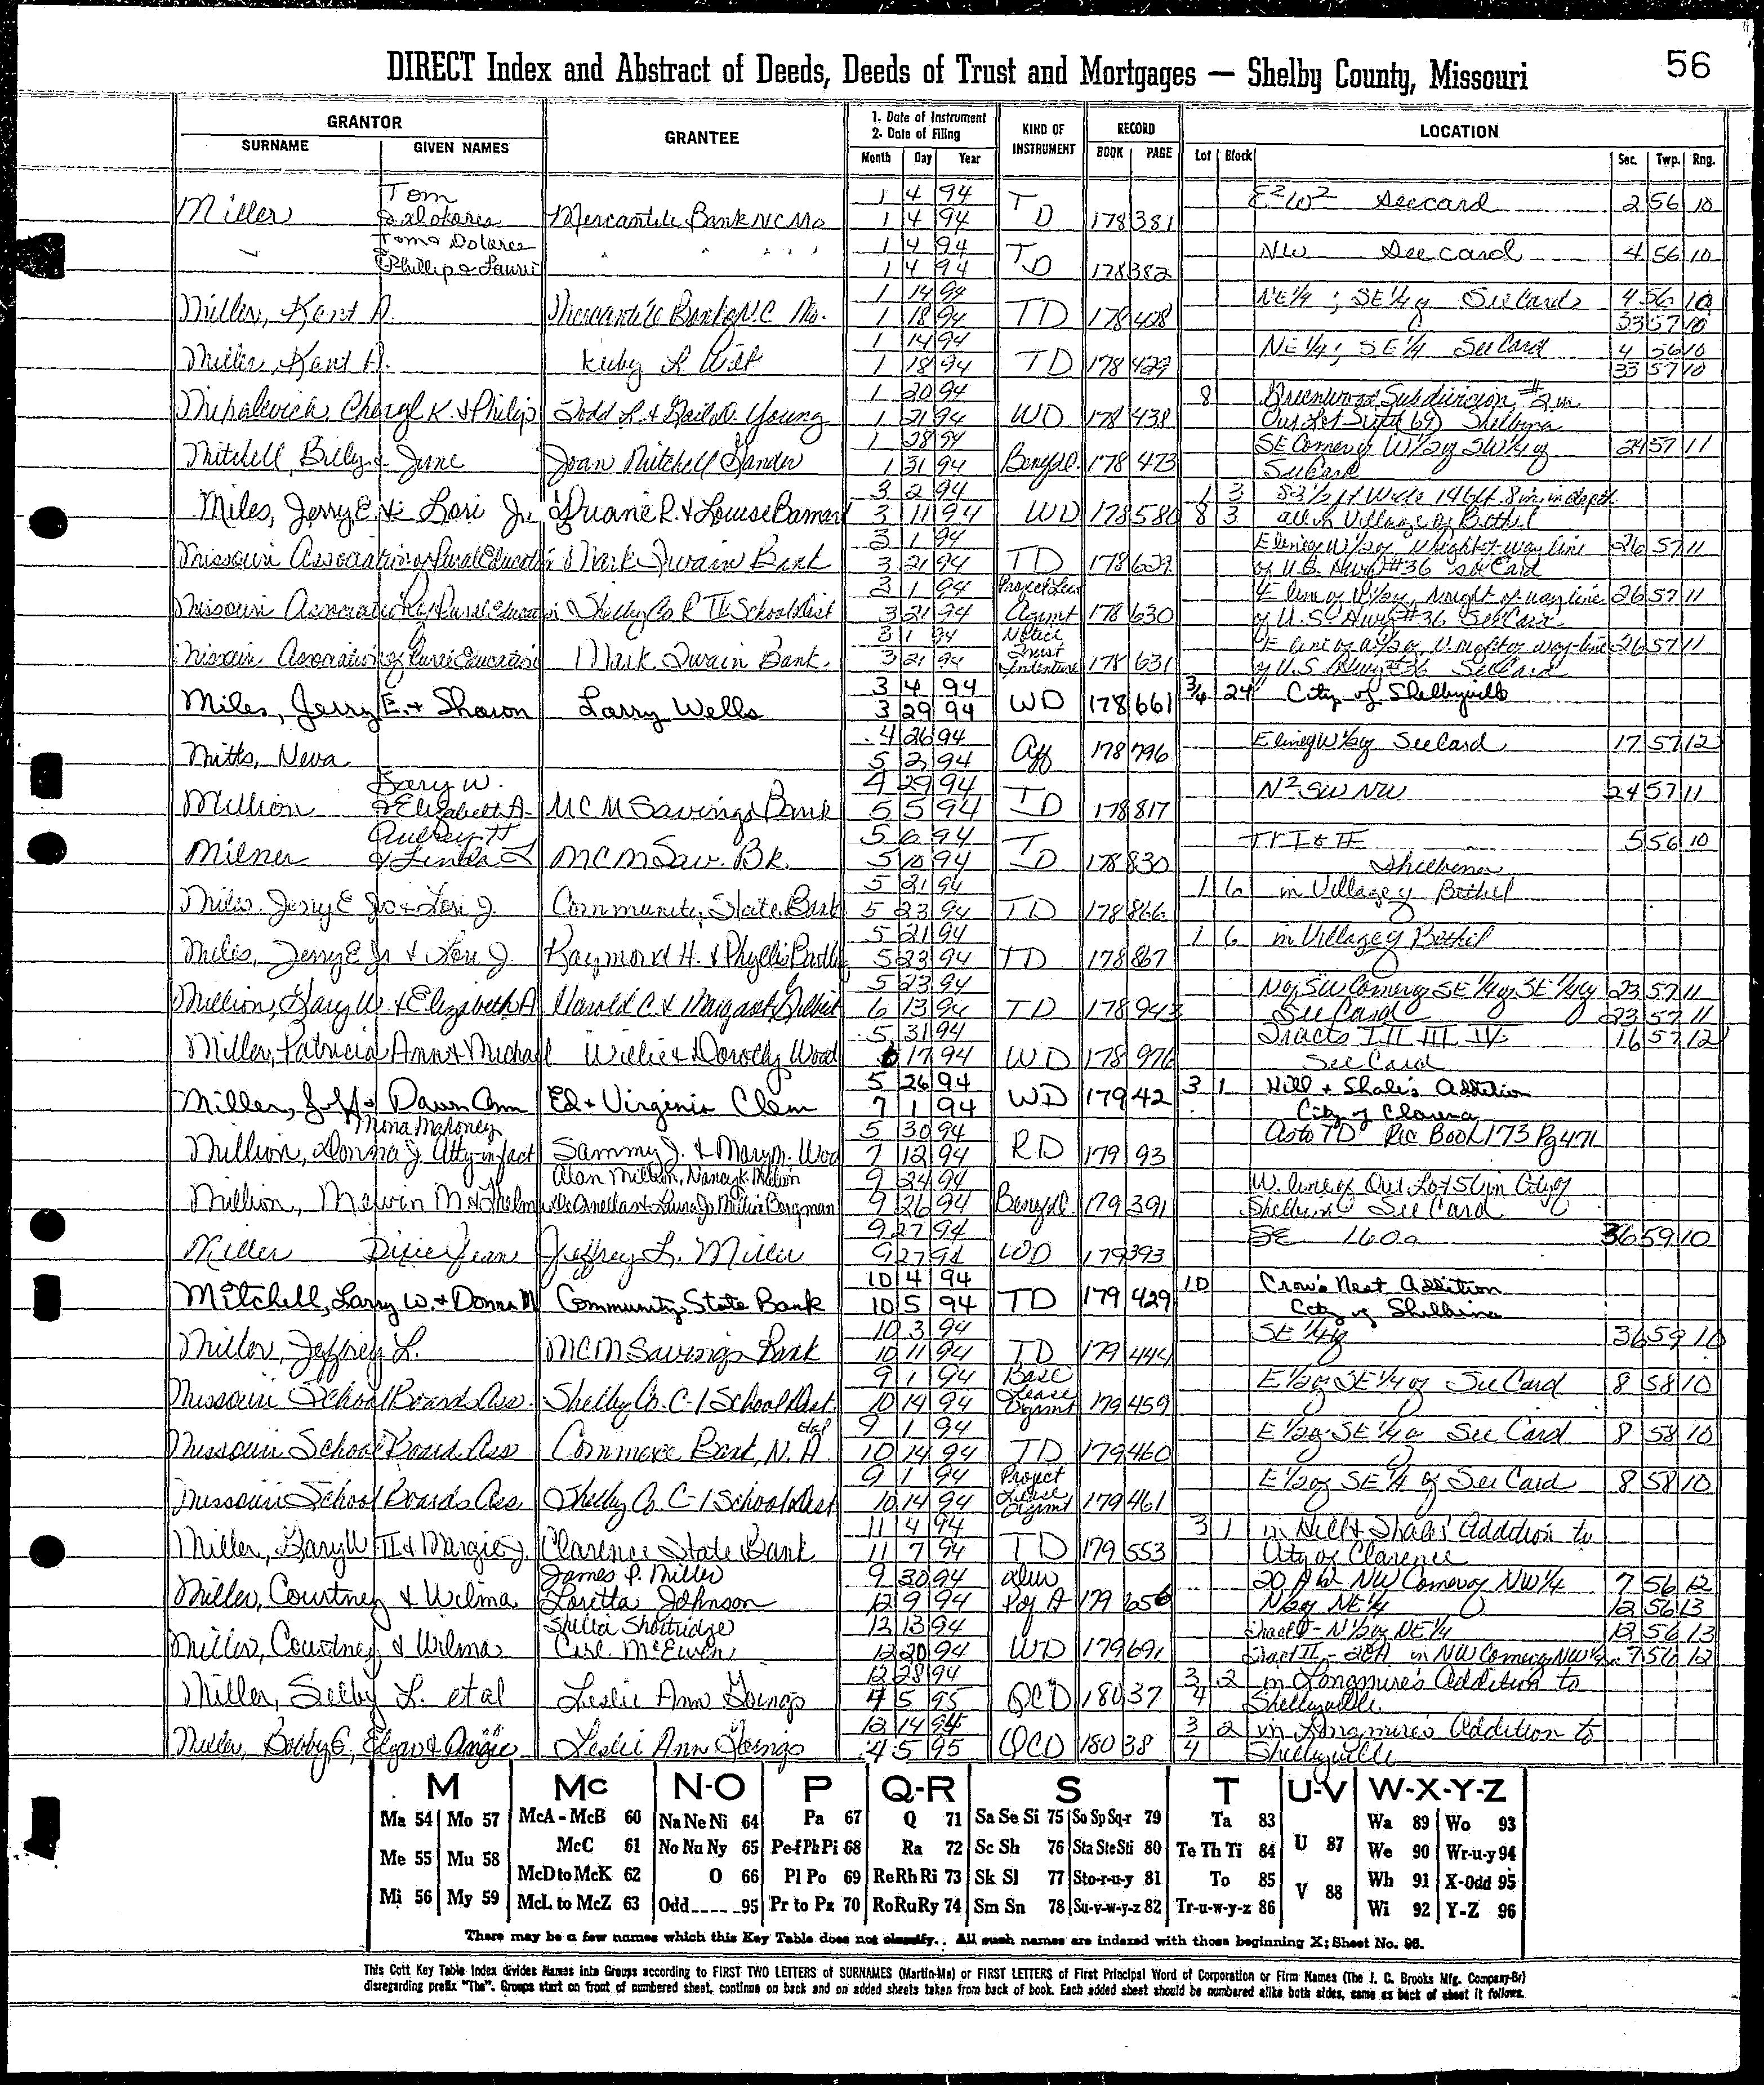 56
DIRECT Index and Abstract of Deeds, Deeds of Trust and Mortgages — Shelby County, Missouri
GRANTOR
SURNAME GIVEN NAMES
GRANTEE
1. Date of Instrument
2. Date of Filing
Month Day Year
KIND OF INSTRUMENT
RECORD
BOOK PAGE
LOCATION
Lot Block Sec. Twp. Rng.
Tom 1 4 94 E2W2 See card 2 56 10
Miller & Dolores Mercantile Bank NC Mo 1 4 94 TD 178 381
Tom & Dolores 1 4 94 NW See card 4 56 10
Phillip & Laurie 1 4 94 TD 178 382
1 14 94 NE 1/4 ; SE 1/4 of See Card 4 56 10
Miller, Kent A. Mercantile Bank of N.C Mo. 1 18 94 TD 178 428 33 57 10
1 14 94 NE 1/4 ; SE 1/4 See Card 4 56 10
Miller, Kent A. Kirby L Wilt 1 18 94 TD 178 429 33 57 10
1 20 94 8 Greenwood Subdivision #2 in
Cheryl K. & Philip Todd L. & Gail D. Young 1 21 94 WD 178 438 Out Lot Sixty (69) Shelbina
1 28 94 SE Corner of W 1/2 of SW 1/4 of 24 57 11
Mitchell, Billy & June Joan Mitchell Sander 1 31 94 Benefdl. 178 473 See Card
3 2 94 1 3 83 1/2 ft Wide 146 ft. 8 in. in depth
Miles, Jerry E. & Lori Jr. Duane R. & Louise 3 11 94 WD 178 580 8 3 all in Village of Bethel
3 1 94 E line of W 1/2 of, N right of way line 26 57 11
Missouri Association of Rural Education Mark Twain Bank 3 21 94 TD 178 629 of U.S. Hwy #36 See Card
3 1 94 Project Lease E line of W 1/2 of, N right of way line 26 57 11
Missouri Association of Rural Education Shelby Co. R IV School Dist 3 21 94 Agmt 178 630 of U.S. Hwy #36 See Card
3 1 94 Notice Trust E line of W 1/2 of, N right of way line 26 57 11
Missouri Association of Rural Education Mark Twain Bank 3 21 94 Indenture 178 631 of U.S. Hwy #36 See Card
3 4 94 3/4 24 City of Shelbyville
Miles, Jerry E. & Sharon Larry Wells 3 29 94 WD 178 661
4 26 94 E line of W 1/2 of See Card 17 57 12
Mitts, Neva 5 2 94 Aff 178 796
Gary W. 4 29 94 N2 SW NW 24 57 11
Million & Elizabeth A. MCM Savings Bank 5 5 94 TD 178 817
Aubrey H 5 6 94 Tr I & II 5 56 10
Milner & Linda L MCM Sav. Bk. 5 10 94 TD 178 830 Shelbina
5 21 94 1 6 in Village of Bethel
Miles, Jerry E Jr & Lori J. Community State Bank 5 23 94 TD 178 866
5 21 94 1 6 in Village of Bethel
Miles, Jerry E Jr & Lori J. Raymond H. & Phyllis 5 23 94 TD 178 867
5 23 94 N of SW Corner of SE 1/4 of SE 1/4 of 23 57 11
Million, Gary W. & Elizabeth A Harold C. & Margaret Gilbert 6 13 94 TD 178 943 See Card 23 57 11
5 31 94 Tracts I II III IV 16 57 12
Miller, Patricia Ann & Michael Willie & Dorothy Wood 6 17 94 WD 178 976 See Card
5 26 94 3 1 Hill & Shale's Addition
Miller, Jeff & Dawn Ann Ed & Virginia Clem 7 1 94 WD 179 42 City of Clarence
Mona Mahoney 5 30 94 As to TD Rec Book 173 Pg 471
Million, Donna J. Atty-in-fact Sammy J. & Mary M. Wood 7 12 94 RD 179 93
Alan Million, Nancy K. Million 9 24 94 W. line of Out Lot 56 in City of
Million, Melvin M & Thelma Laura Jo Million Bergman 9 26 94 Benefdl. 179 391 Shelbina See Card
9 27 94 SE 160a 36 59 10
Miller Dixie Jean Jeffrey L. Miller 9 27 94 WD 179 393
10 4 94 10 Crow's Nest Addition
Mitchell, Larry W. & Donna M Community State Bank 10 5 94 TD 179 429 City of Shelbina
10 3 94 SE 1/4 of 36 59 10
Miller, Jeffrey L. MCM Savings Bank 10 11 94 TD 179 444
9 1 94 Base E 1/2 of SE 1/4 of See Card 8 58 10
Missouri School Boards Ass. Shelby Co. C-1 School Dist. 10 14 94 Lease Agmt 179 459
etal 9 1 94 E 1/2 of SE 1/4 of See Card 8 58 10
Missouri School Boards Ass Commerce Bank, N.A. 10 14 94 TD 179 460
9 1 94 Project E 1/2 of SE 1/4 of See Card 8 58 10
Missouri School Boards Ass Shelby Co. C-1 School Dist 10 14 94 Lease Agmt 179 461
11 4 94 3 1 in Hill & Shale's Addition to
Miller, Gary W II & Margie J. Clarence State Bank 11 7 94 TD 179 553 City of Clarence
James P. Miller 9 30 94 20 A in NW Corner of NW 1/4 7 56 12
Miller, Courtney & Wilma Loretta Johnson 12 9 94 P of A 179 656 N 1/2 of NE 1/4 12 56 13
Shelia Shortridge 12 13 94 Tract I - N 1/2 of NE 1/4 12 56 13
Miller, Courtney & Wilma Carl McEwen 12 20 94 WD 179 691 Tract II - 20A in NW Corner of NW 1/4 7 56 12
12 28 94 3 2 in Longmire's Addition to
Miller, Selby L. et al Leslie Ann Goings 4 5 95 QCD 180 37 4 Shelbyville
12 14 94 3 2 in Longmire's Addition to
Miller, Bobby E, Elgin & Angie Leslie Ann Goings 4 5 95 QCD 180 38 4 Shelbyville
M Mc N-O P Q-R S T U-V W-X-Y-Z
Ma 54 Mo 57 McA - McB 60 Na Ne Ni 64 Pa 67 Q 71 Sa Se Si 75 So Sp Sq-r 79 Ta 83 Wa 89 Wo 93
Me 55 Mu 58 McC 61 No Nu Ny 65 Pe-f Ph Pi 68 Ra 72 Sc Sh 76 Sta Ste Sti 80 Te Th Ti 84 U 87 We 90 Wr-u-y 94
McD to McK 62 O 66 Pl Po 69 Re Rh Ri 73 Sk Sl 77 Sto-r-u-y 81 To 85 Wh 91 X-Odd 95
Mi 56 My 59 McL to McZ 63 Odd 95 Pr to Pz 70 Ro Ru Ry 74 Sm Sn 78 Su-v-w-y-z 82 Tr-u-w-y-z 86 V 88 Wi 92 Y-Z 96
There may be a few names which this Key Table does not classify.. All such names are indexed with those beginning X; Sheet No. 95.
This Cott Key Table Index divides Names into Groups according to FIRST TWO LETTERS of SURNAMES (Martin-Ma) or FIRST LETTERS of First Principal Word of Corporation or Firm Names (The J. C. Brooks Mfg. Company-Br)
disregarding prefix "The". Groups start on front of numbered sheet, continue on back and on added sheets taken from back of book. Each added sheet should be numbered alike both sides, same as back of sheet it follows.